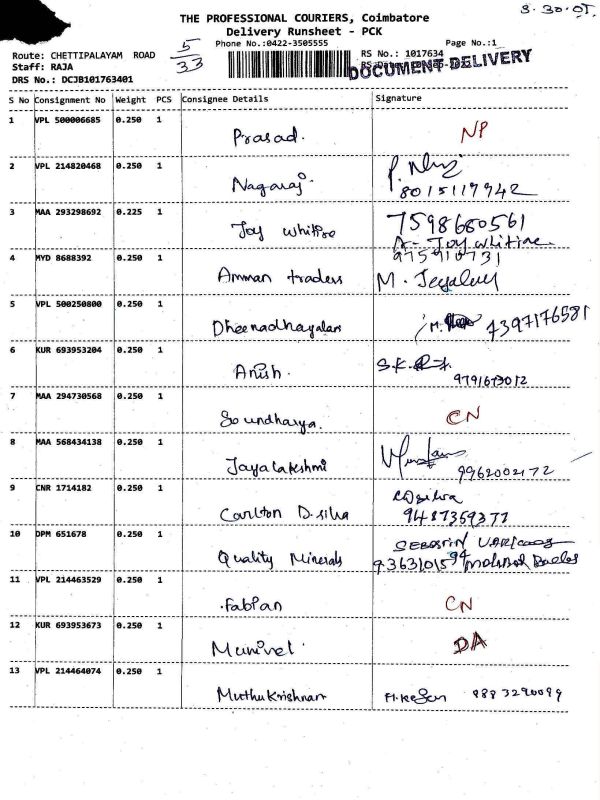 THE PROFESSIONAL COURIERS, Coimbatore
Delivery Runsheet - PCK
Phone No.:0422-3505555
Page No.:1
5/33
Route: CHETTIPALAYAM ROAD
RS No.: 1017634
Staff: RAJA
DOCUMENT DELIVERY
DRS No.: DCJB101763401
S No Consignment No Weight PCS Consignee Details Signature
1 VPL 500006685 0.250 1 Prasad. NP
2 VPL 214820468 0.250 1 Nagaraj. 8015117942
3 MAA 293298692 0.225 1 Joy whitise 7598660561
A- Joy whitine
4 MYD 8688392 0.250 1 Amman traders M.
5 VPL 500250800 0.250 1 Dheenadhayalan 7397176581
6 KUR 693953204 0.250 1 Anish. 9791673012
7 MAA 294730568 0.250 1 Soundharya. CN
8 MAA 568434138 0.250 1 Jayalakshmi 9962002172
9 CNR 1714182 0.250 1 Carlton D.silva
9487359377
10 DPM 651678 0.250 1 Quality Minerals
11 VPL 214463529 0.250 1 .Fabian CN
12 KUR 693953673 0.250 1 Munivel. DA
13 VPL 214464074 0.250 1 Muthukrishnan 8883290099